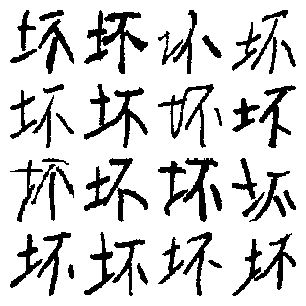 坏坏坏坏
坏坏坏坏
坏坏坏坏
坏坏坏坏